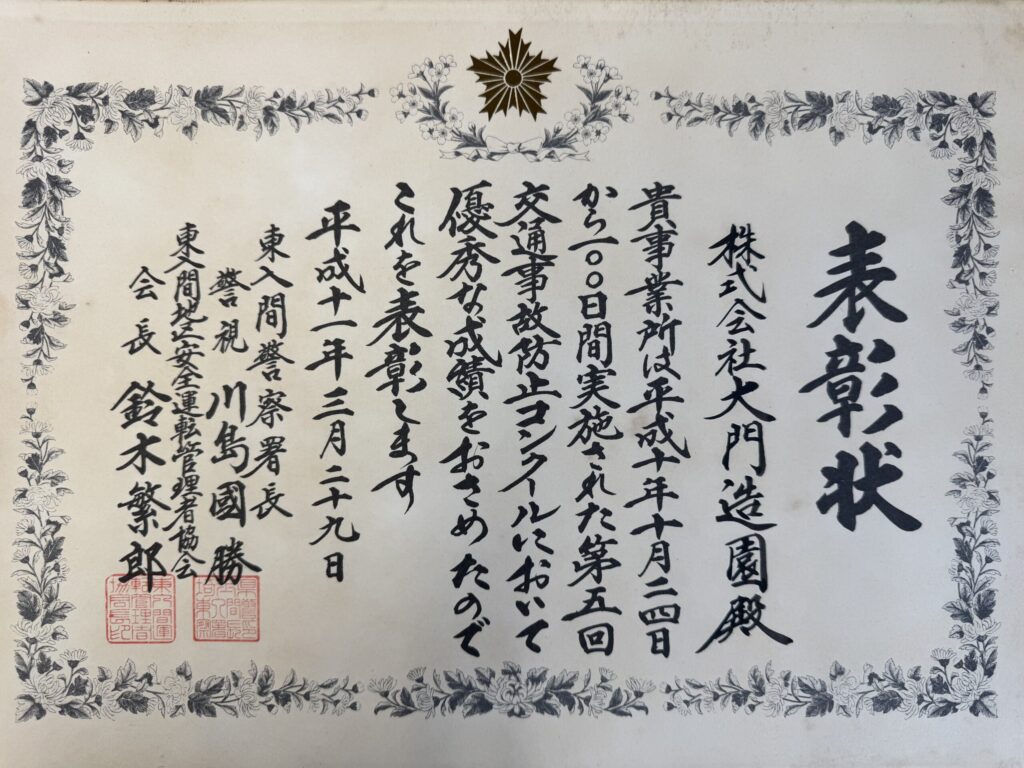 表彰状
株式会社大門造園殿
貴事業所は平成十年十月二四日
から一〇〇日間実施された第五回
交通事故防止コンクールにおいて
優秀な成績をおさめたので
これを表彰します
平成十一年三月二十九日
東入間警察署長
警視 川島國勝
東入間地区安全運転管理者協会
会長 鈴木繁郎